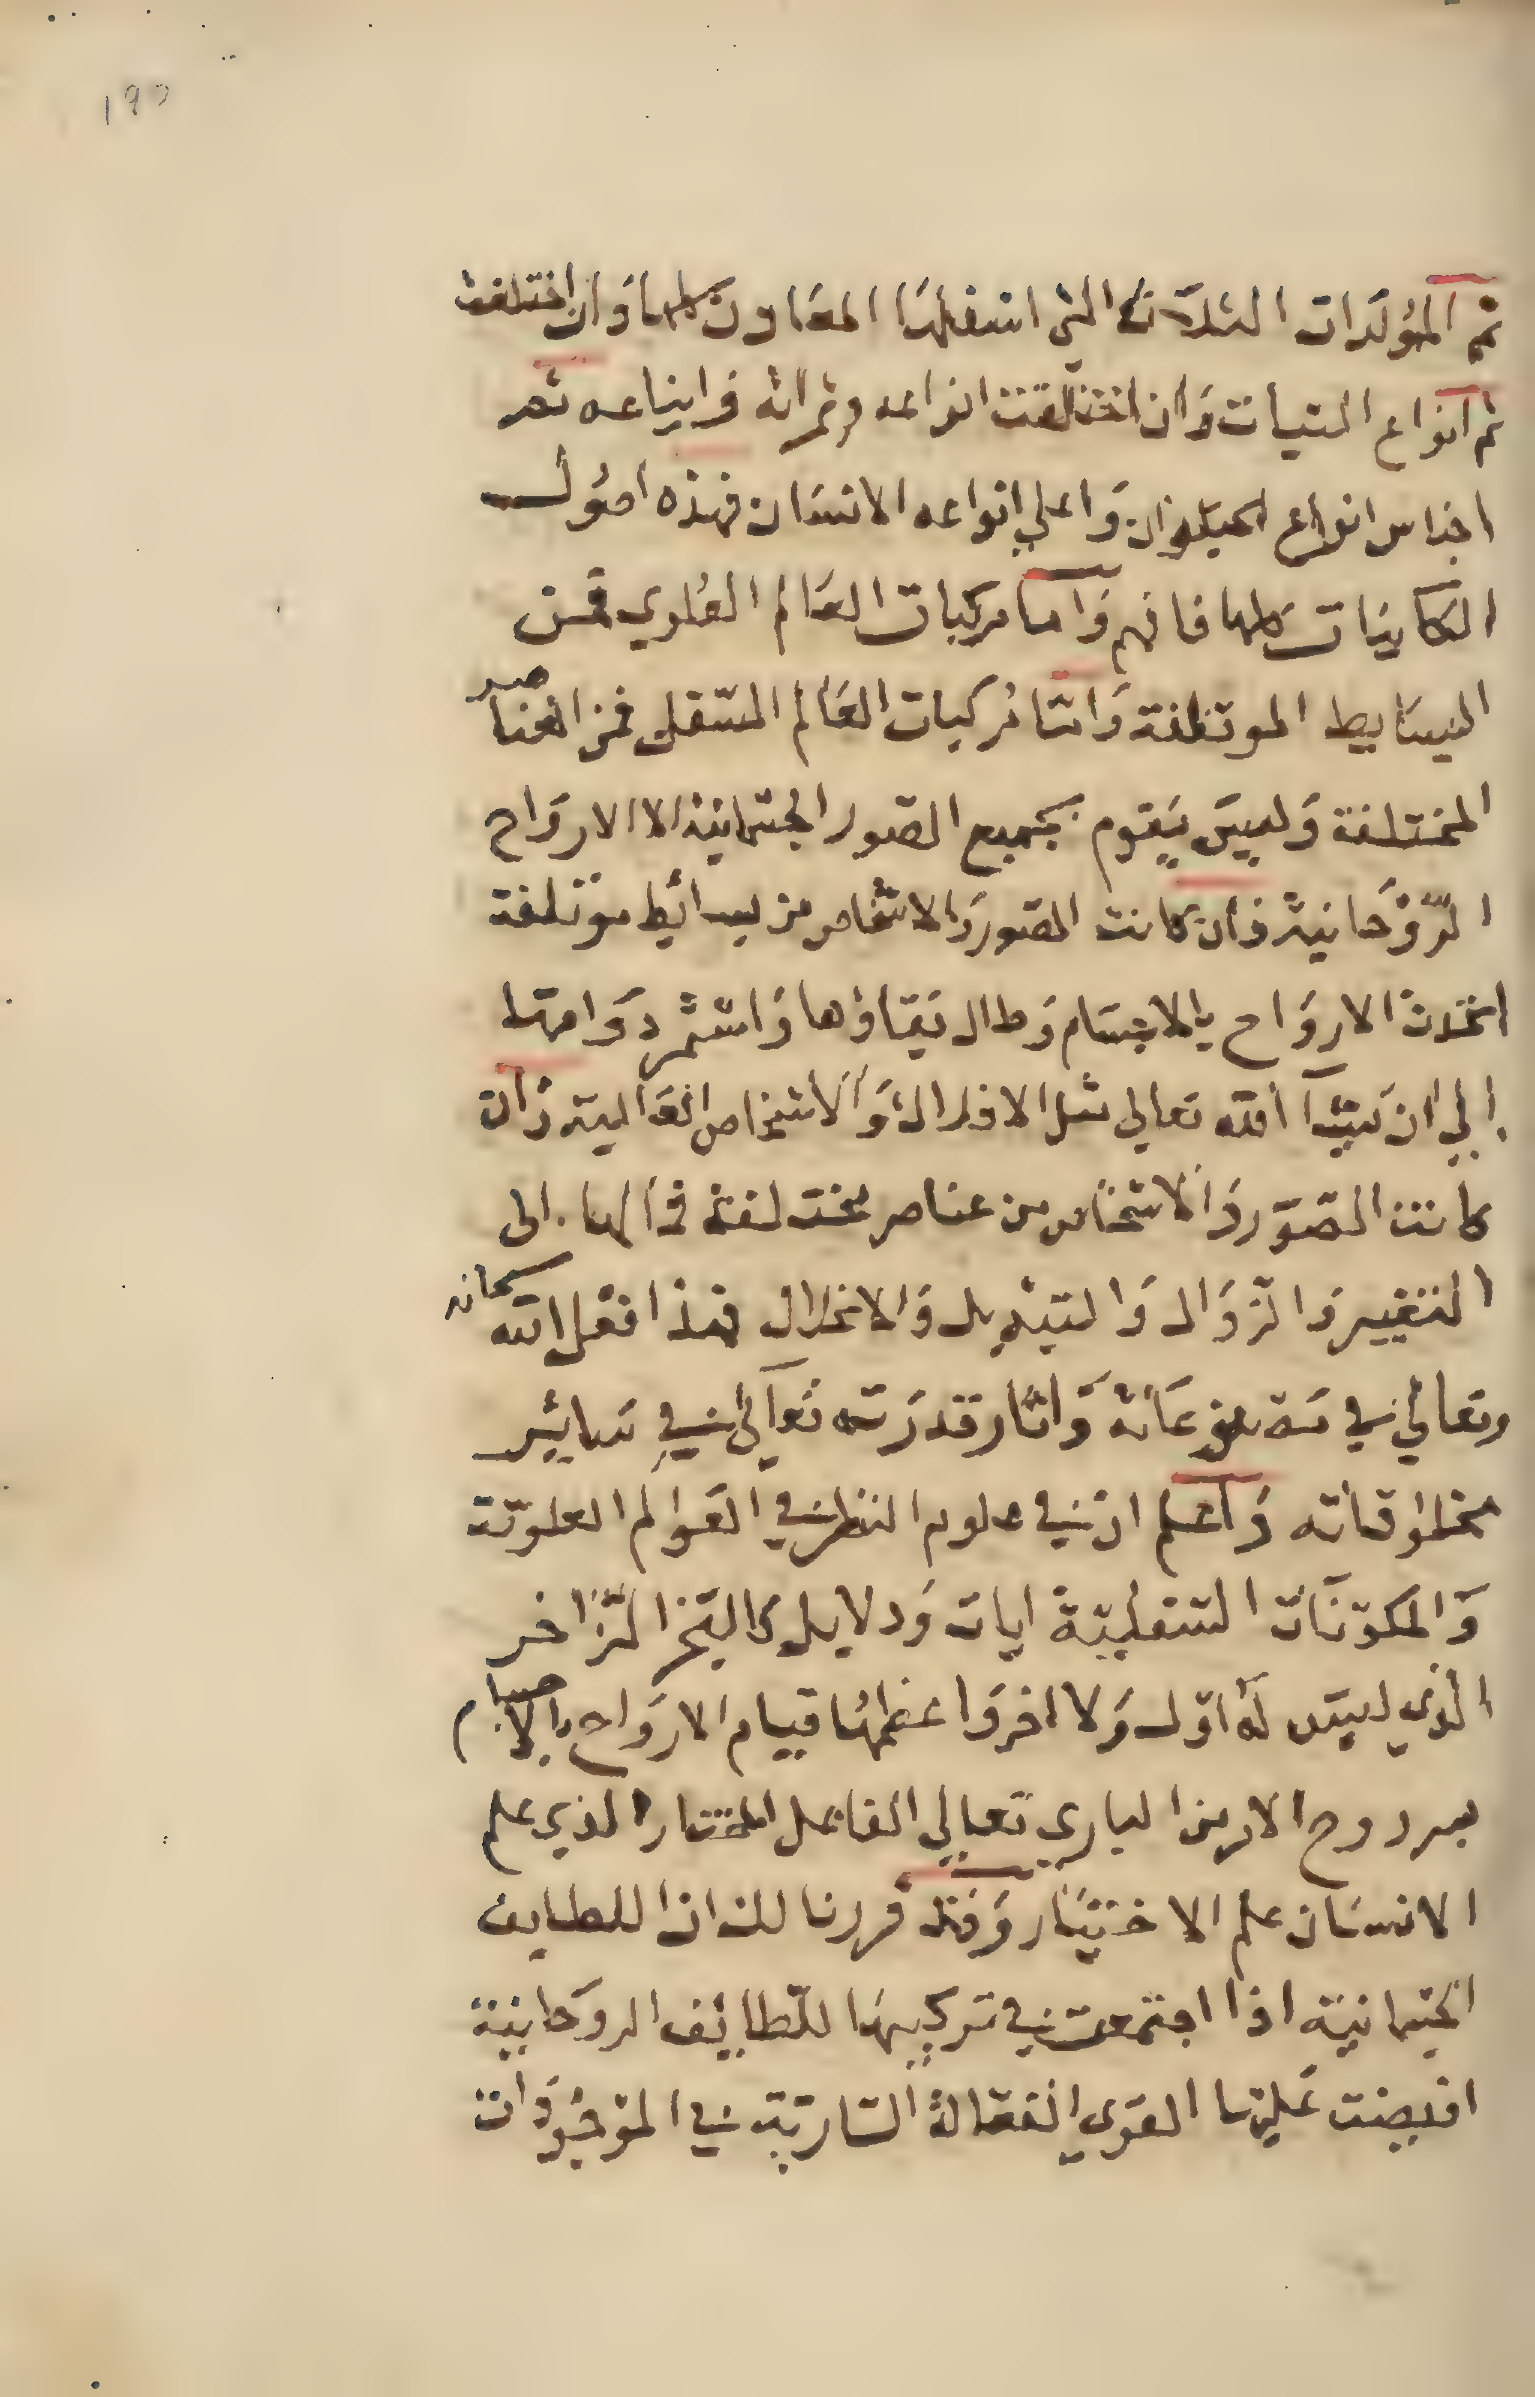 ١٩٥
ثم المؤلدات الثلاثة التي اسفلها المعادن كلها وان اختلفت
ثم انواع النبات وان اختلفت انواعه وثمراته واينا عه ثم
اجناس انواع الحيوان واعلي انواعه الانسان فهذه اصول
الكاينات كلها فافهم واما مركبات العالم العلوي فمن
البسايط الموتلفة واما مركبات العالم السفلي فمن العناصر
المختلفة وليس يقوم بجميع الصور الجسمانية الا الارواح
الروحانية فان كانت الصور والاشخاص من بسائط موتلفة
اتحدت الارواح بالاجسام وطال بقاؤها واستمر دوامها
الي ان يشآ الله تعالي مثل الافلاك والاشخاص العالية وان
كانت الصور والاشخاص من عناصر مختلفة فمآلها الى
التغيير والزوال والتبديل والانحلال فهذا فعل الله سبحانه
وتعالي في مصنوعاته واثار قدرته تعالي في سائر
مخلوقاته واعلم ان في علوم النظر في العوالم العلوية
والمكونات السفلية ايات ودلايل كالبحر الزاخر
الذي ليس له اول ولا اخر واعظمها قيام الارواح بالاجسام
بسر روح الامر من الباري تعالي الفاعل المختار الذي علم
الانسان علم الاختيار وقد قررنا لك ان اللطايف
الجسمانية اذا اجتمعت في تركيبها للطايف الروحانية
افيضت عليها القوي الفعالة السارية في الموجودات